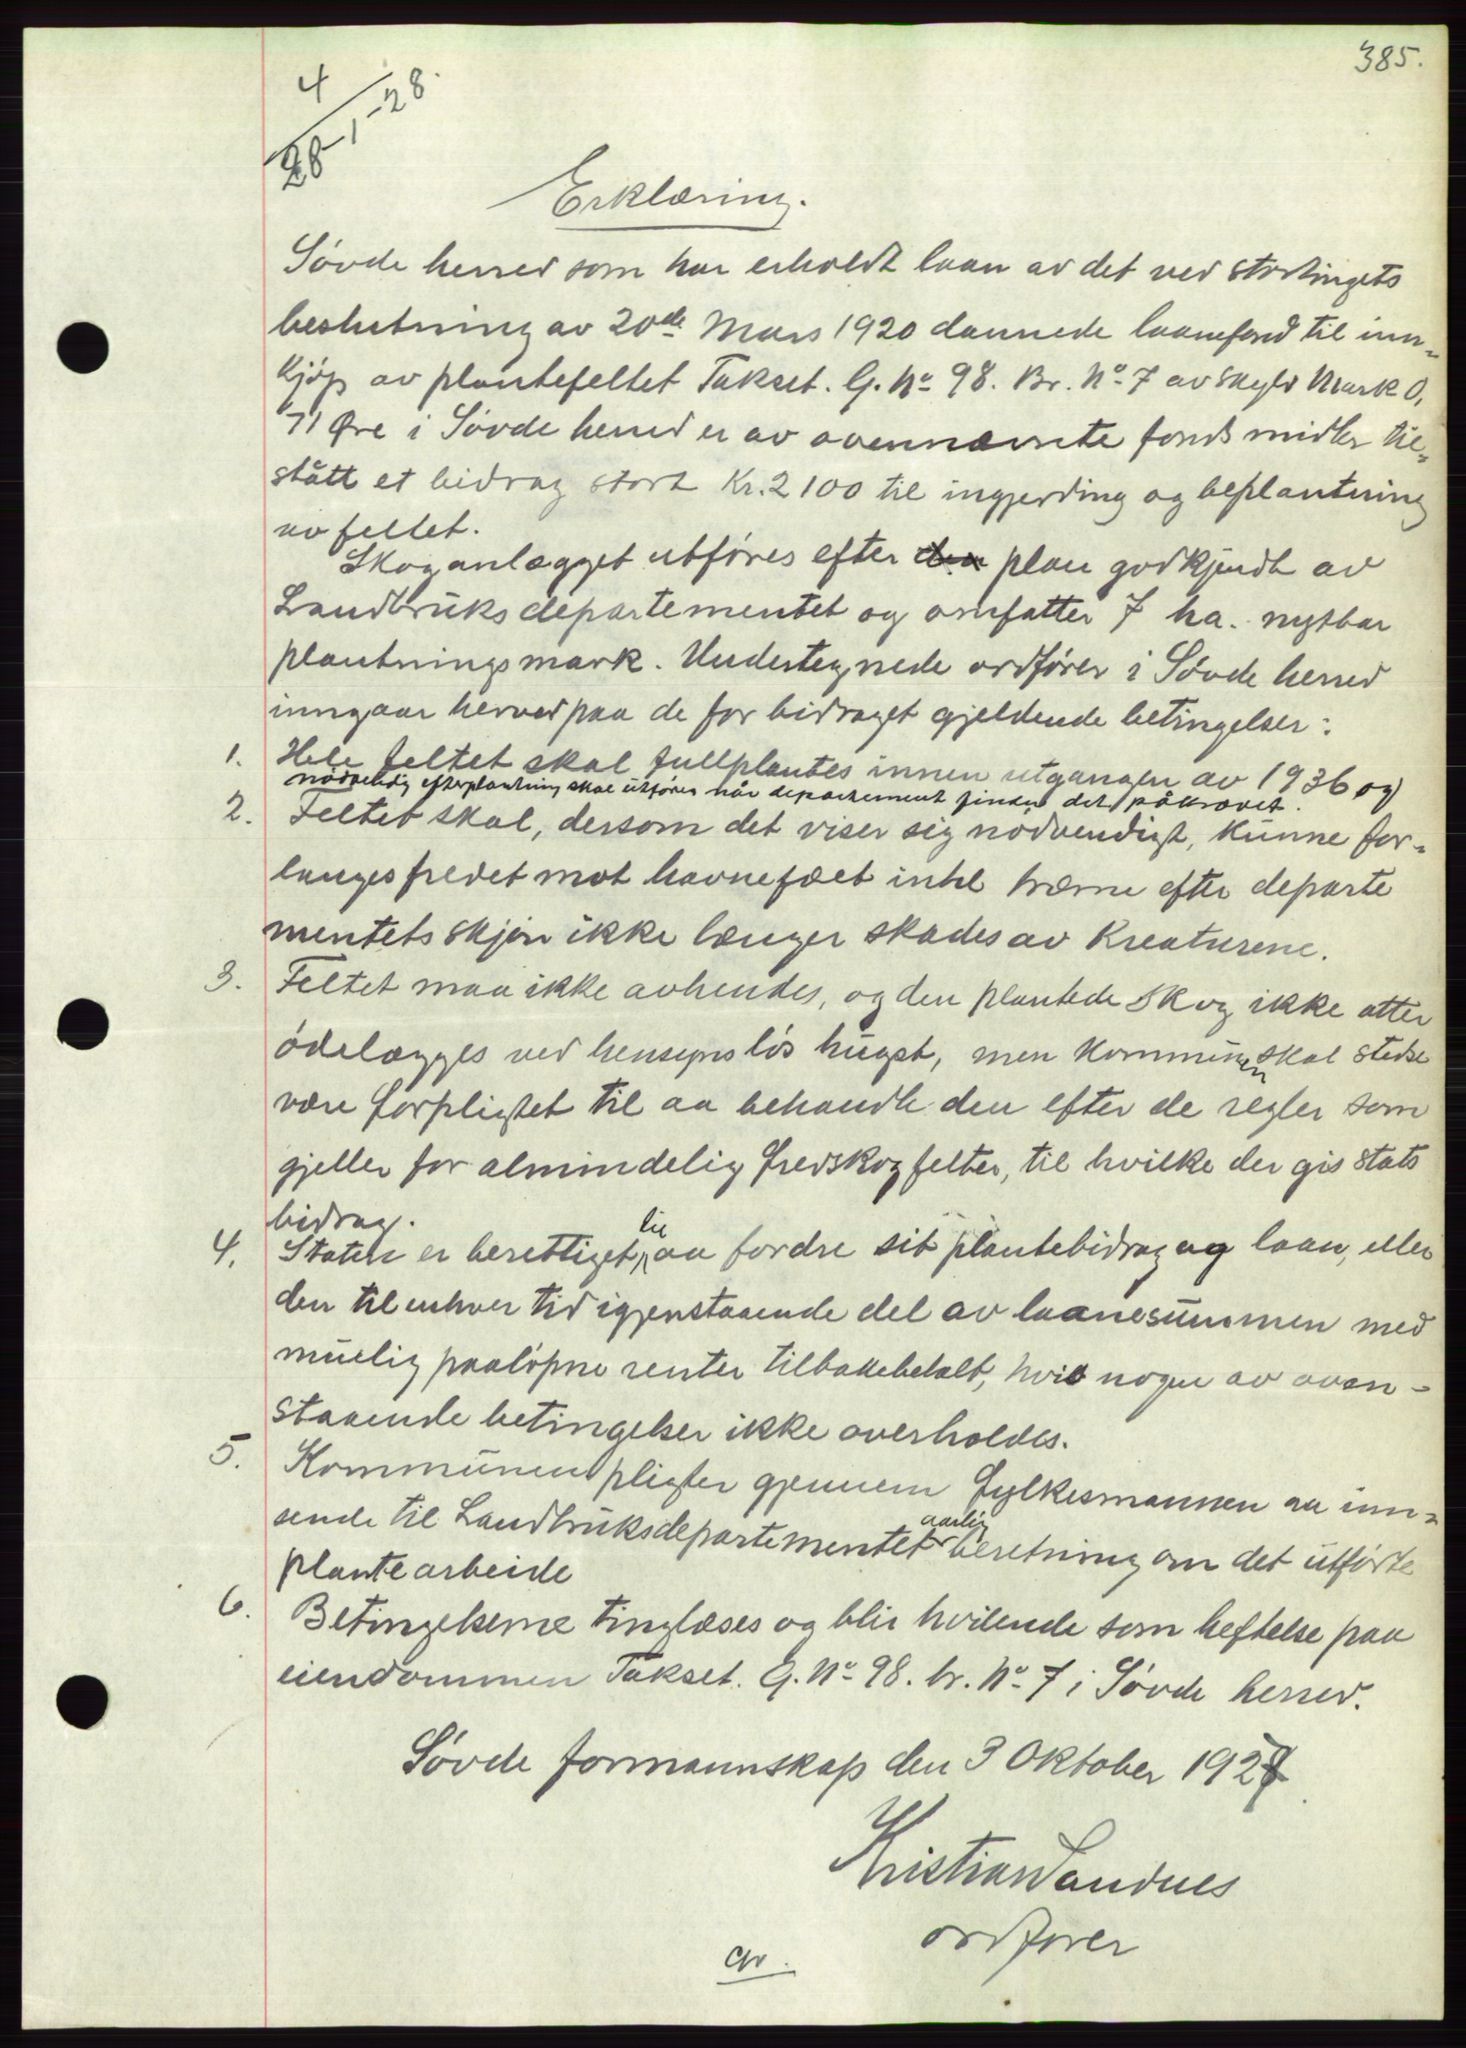 385.
4/28-1-28.
Erklæring.
Søvde herred som har erholdt laan av det ved stortingets
beslutning av 20de Mars 1920 dannede laanefond til inn-
kjøp av plantefeltet Takset. G. No 98. Br. No 7 av skyld Mark 0,
71 Øre i Søvde herred er av ovennævnte fonds midler til-
stått et bidrag stort Kr. 2100 til ingjerding og beplantning
av feltet.
Skoganlægget utføres efter plan godkjendt av
Landbruksdepartementet og omfatter 7 ha. nyttbar
plantningsmark. Undertegnede ordfører i Søvde herred
inngaar herved paa de for bidraget gjeldende betingelser:
1. Hele feltet skal fullplantes innen utgangen av 1936 og
nødvendig efterplantning skal utføres når departement finder det påkrævet.
2. Feltet skal, dersom det viser sig nødvendigt, kunne for-
langes fredet mot havnefæet intil trærne efter departe
mentets skjøn ikke længer skades av kreaturene.
3. Feltet maa ikke avhendes, og den plantede skog ikke atter
ödelægges ved hensynsløs hugst, men kommunen skal stedse
være forpligtet til aa behandle den efter de regler som
gjeller for almindelig fredskogfelter, til hvilke der gis stats
bidrag.
4. Staten er berettiget til aa fordre sit plantebidrag og laan, eller
den til enhver tid igjenstaaende del av laanesummen med
muelig paaløpne renter tilbakebetalt, hvis nogen av ovan-
staaende betingelser ikke overholdes.
5. Kommunen pligter gjennem fylkesmannen aa inn-
sende til Landbruksdepartementet aarlig beretning om det utførte
plantearbeide
6. Betingelserne tinglæses og blir hvilende som heftelse paa
eiendommen Takset. G. No 98. br. No 7 i Søvde herred.
Søvde formannskap den 3 Oktober 1927
Kristian Sandnes
ordfører